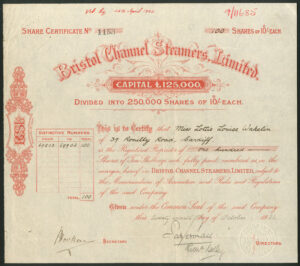 Share Certificate No. 1153
100 Shares of 10/- Each.
Bristol Channel Steamers, Limited.
CAPITAL £125,000,
Divided into 250,000 Shares of 10/- Each.
DISTINCTIVE NUMBERS
FROM TO
TOTAL 100
This is to Certify that Miss Lottie Louise Wakelin
of 57 Romilly Road, Cardiff
is the Registered Proprietor of One hundred
Shares of Ten Shillings each fully paid, numbered as in the
margin, hereof in BRISTOL CHANNEL STEAMERS, LIMITED, subject to
the Memorandum of Association and Rules and Regulations
of the said Company.
Given under the Common Seal of the said Company
this day of October
SECRETARY
DIRECTORS